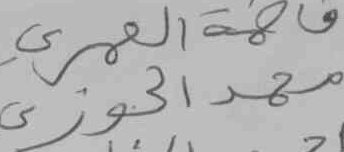 فاطمة العمري
محمد الحوزي